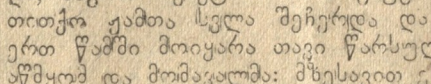 თითქო ჟამთა სვლა შეჩერდა და
ერთ წამში მოიყარა თავი წარსულ
აწმყომ და მომავალმა: მზესავით